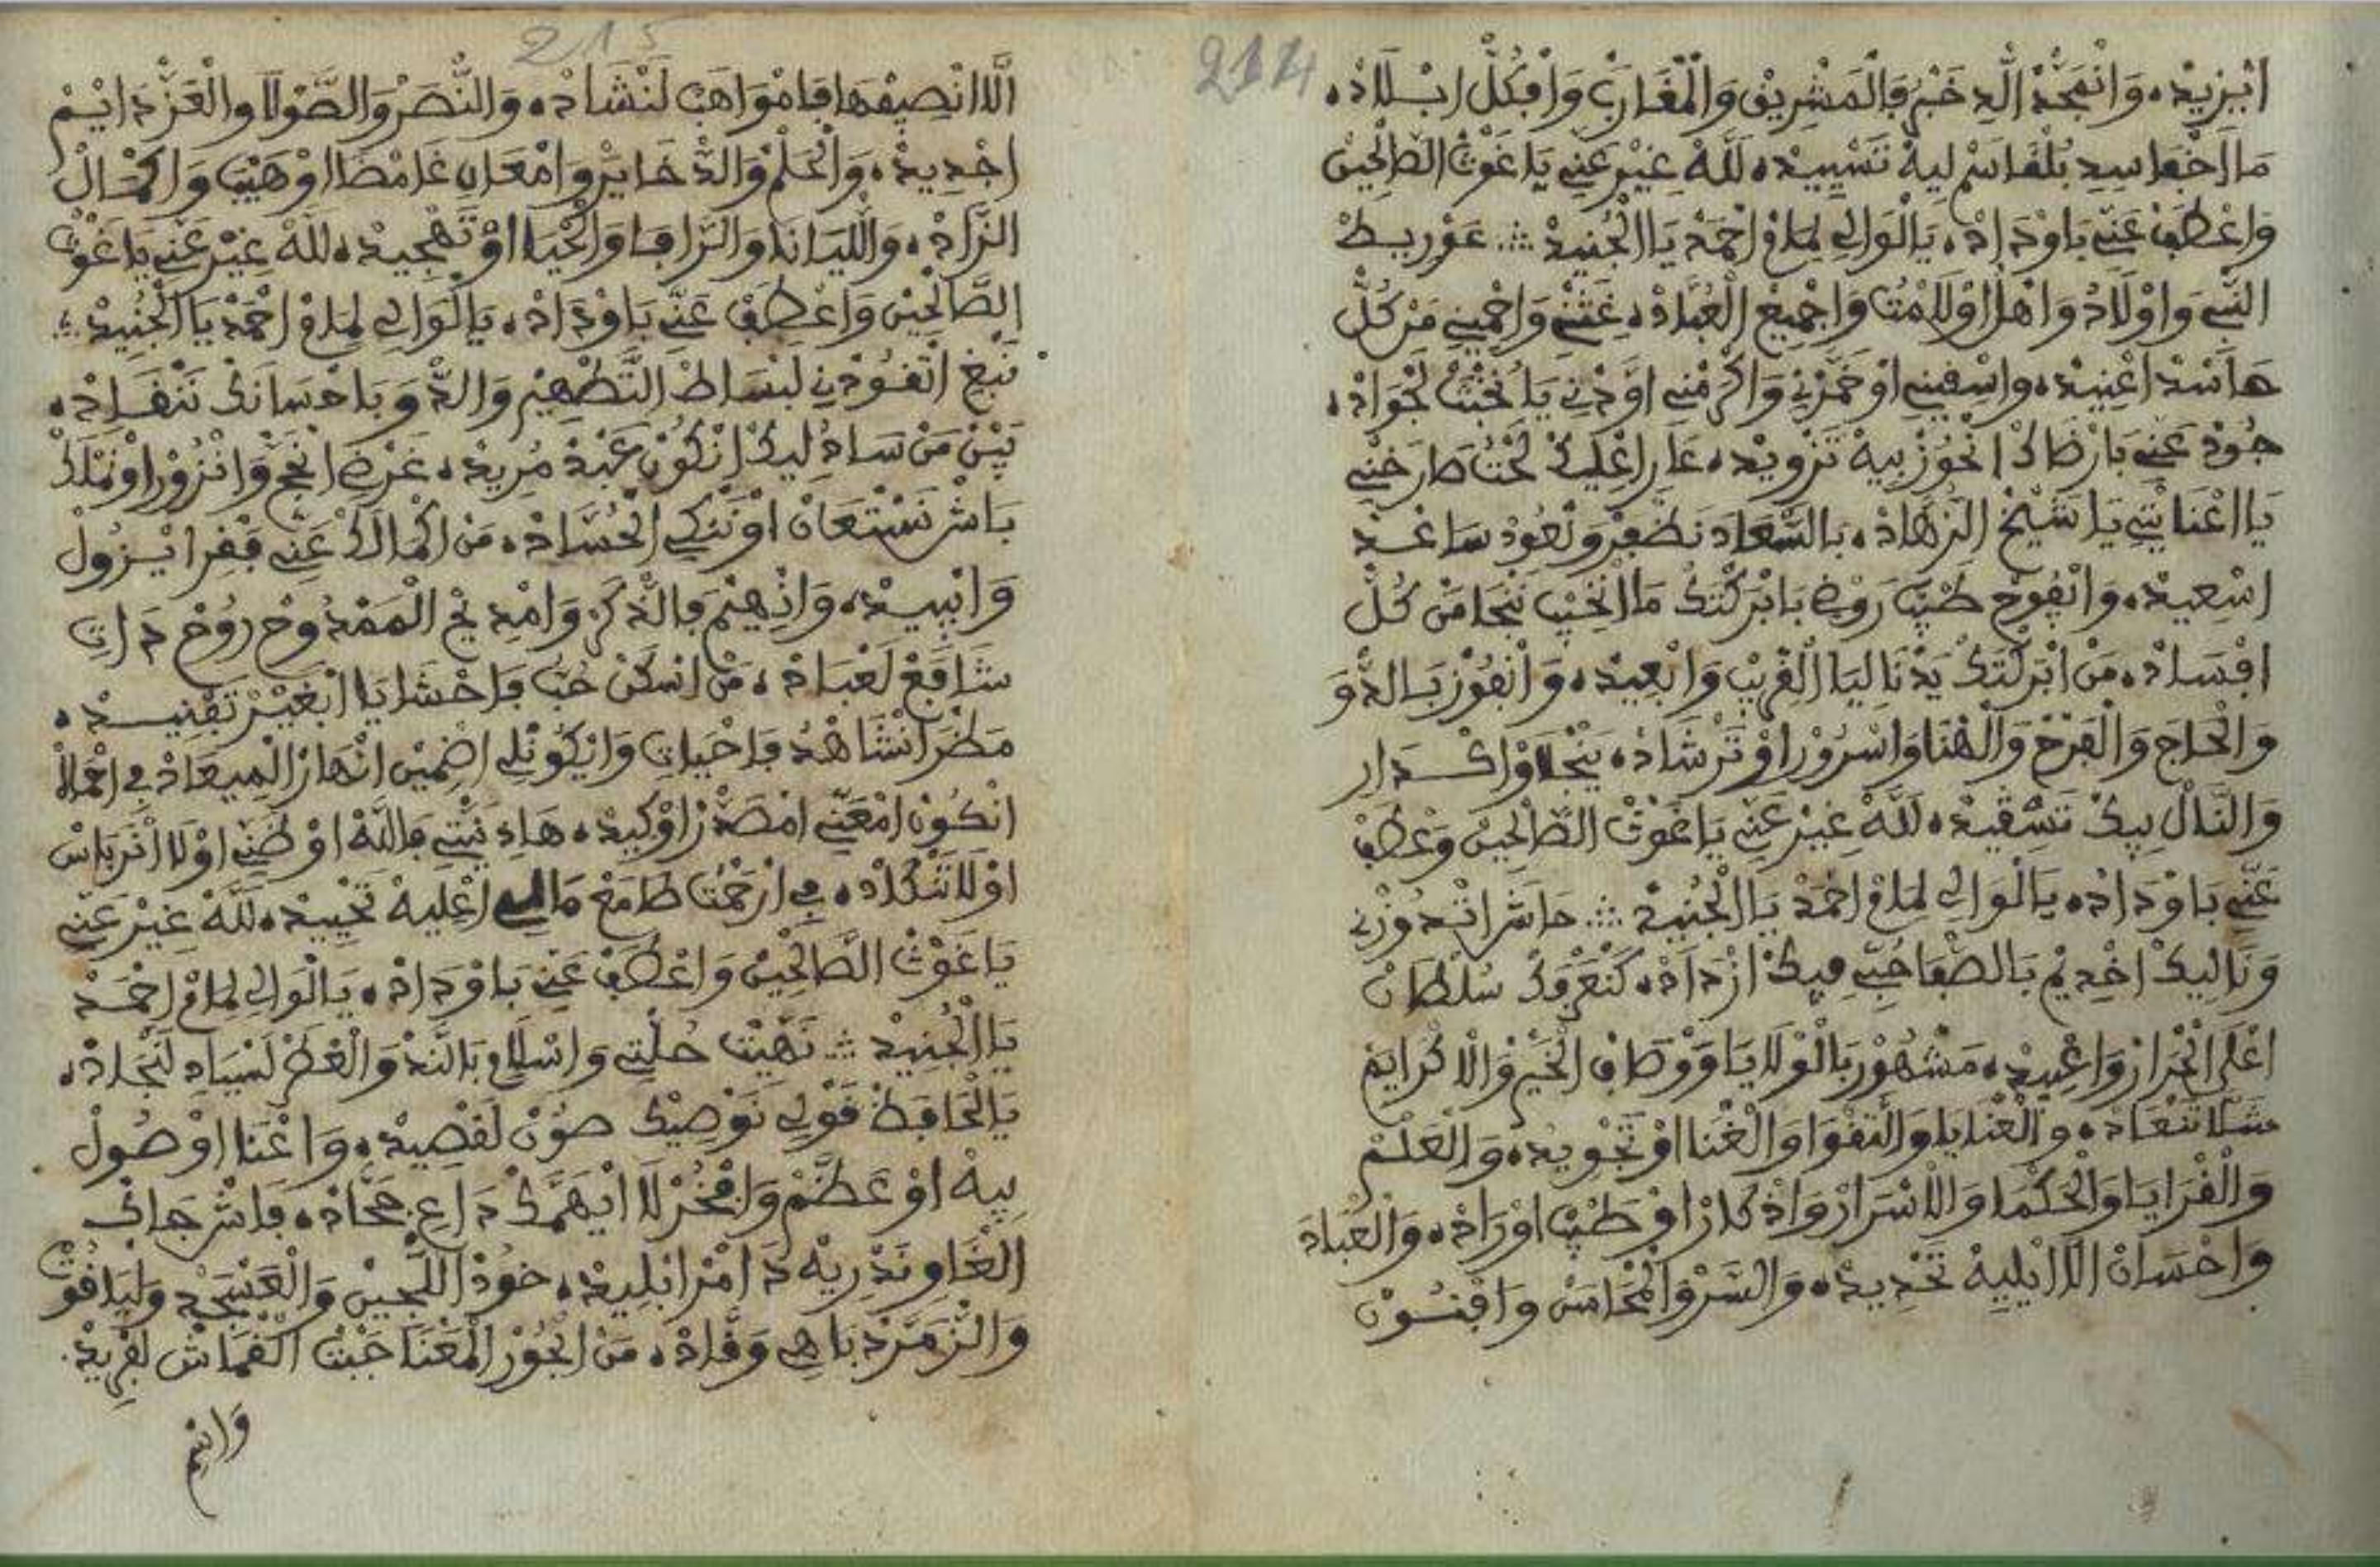 214
ابزيدْ، وَانْمَجَّدْ الَّدِ خَبَرْ فِالْمَشْرِيقْ وَالْمْغَارَبْ وَافْكُلّْ ابْلَادْ،
مَا اخْفَا سِيدِ بُلْقَاسَمْ لِيهْ تَسْيِيدْ، لَلّهْ غِيرْ عَنِّي يَا غَوْثْ الصَّالْحِينْ
وَاعْطَفْ عَنِّي بَاوْدَادْ، يَا لْوَالِي لِمَامْ احْمَدْ يَا الْجُنِيدْ ؞ عَوْرِيطْ
النّْبِي وَاوْلَادْ وَاهْلُ اوْلَامْتُ وَاجْمِيعْ الْعُبَّادْ، غَثْنِي وَاحْمِينِي مَنْ كُلّْ
هَاسَدْ اعْنِيدْ، وَاسْقِينِي اوْخَمَّرْنِي وَاكْرَمْنِي اوْ دْنِي يَا نُخْبَتْ لَجْوَادْ،
جُودْ عَنِّي بَارْضَاكْ انْحُوزْ بِيهْ تَزْوِيدْ، عَارِ اعْلِيكْ لَحْتُ صَارَخْنِي
يَا اعْنَايْتِي يَا شَيْخْ الزُّهَّادْ، بَالسّْعَادَ نَظْفَرْ وَنْعُودْ سَاعَدْ
اسْعِيدْ، وَانْفُوحْ طَيْبْ رَوْضِ بَابْرَكْتَكْ مَا انْخِيبْ نَنْجَا مَنْ كُلّْ
افْسَادْ، مَنْ ابْرَكْتَكْ يَدْنَا لِيَا الْقْرِيبْ وَابْعِيدْ، وَانْفُوزْ بَالدّْوَ
وَالْحَاجَ وَالْفَرْحْ وَالْهْنَا وَاسْرُورْ اوْتَرْشَادْ، يَنْجْلَاوْ اكْدَارِ
وَالنَّالْ بِيكْ تَسْقِيدْ، لَلّهْ غِيرْ عَنِّي يَا غَوْثْ الصَّالْحِينْ وَعْطَفْ
عَنِّي بَاوْدَادْ، يَا لْوَالِي لِمَامْ احْمَدْ يَا الْجُنِيدْ ؞ حَاشَ اتْدُوزْنِي
وَنَا لِيكْ اخْدِيمْ بَالصّْفَا حُبِّي فِيكْ ازْدَادْ، كَنْعَرْفَكْ سُلْطَانْ
اعْلَى الْحْرَارْ وَاعْبِيدْ، مَشْهُورْ بَالْوْلَايَا وَوْصَافْ الْخَيْرْ وَالَاكْرَايَمْ
شَلَّا تَنْعَادْ، وَالْعْنَايَا وَالتّْقْوَا وَالْغْنَا اوْتَجْوِيدْ، وَالْعَلْمْ
وَالْقْرَايَا وَالْحَكْمَا وَالَاسْرَارْ وَادْكَارْ اوْطَيْبْ اوْرَادْ، وَالْعْبَادَ
وَاحْسَانْ الَّا ايْلِيهْ تَحْدِيدْ، وَالسَّرّْ وَالْمْحَاسَنْ وَافْنُونْ
215
الَّا انْصِيفْهَا فَامْوَاهَبْ لَنْشَادْ، وَالنّْصَرْ وَالصَّوْلَا وَالْعَزّْ دَايْمْ
اجْدِيدْ، وَالْحَلْمْ وَالدّْخَايَرْ وَامْعَانِ غَامْضَا اوْهَيْبَ وَاكْمَالْ
الزَّادْ، وَاللّْيَانَا وَالرَّافَا وَالْحْيَا اوْتَهْجِيدْ، لَلّهْ غِيرْ عَنِّي يَا غَوْثْ
الصَّالْحِينْ وَاعْطَفْ عَنِّي بَاوْدَادْ، يَا لْوَالِي لِمَامْ احْمَدْ يَا الْجُنِيدْ ؞
نَبْغِ اتْقُودْنِي لَبْسَاطْ التَّطْهِيرْ وَالدّْوَ بَاحْسَانَكْ نَنْقَادْ،
بِينْ مَنْ سَادُ لِيكْ انْكُونْ عَبْدْ مُرِيدْ، غَرْضِ انْحَجّْ وَانْزُورْ اوْنَمْلَكْ
بَاشْ نَسْتْعَانْ اوْنَنْكِي الْحُسَّادْ، مَنْ اكْمَالَكْ عَنِّي فَقْرِ ايْزُولْ
وَايْبِيدْ، وَانْهِيمْ فَالذّْكَرْ وَامْدِيحْ الْمَمْدُوحْ رُوحْ دَاتِ
شَافَعْ لَعْبَادْ، مَنْ اسْكَنْ حُبُّ فَاحْشَايَا ابْغَيْرْ تَفْنِيدْ،
مَطْرَ انْشَاهْدُ فَاحْيَاتِ وَايْكُونْلِي اضْمِينْ انْهَارْ الْمِيعَادْ، فِي احْمَالْ
انْكُونْ امْعَنِّي امْصَدَّرْ اوْكِيدْ، هَادِ نِيّْتِي فَاللّهْ اوْطَنِّي اوْلَا انْرَ بَاسْ
اوْلَا تَنْكَادْ، فِي ارْحَمْتُ طَامَعْ مَالِي اعْلِيهْ تَحْيِيدْ، لَلّهْ غِيرْ عَنِّي
يَا غَوْثْ الصَّالْحِينْ وَاعْطَفْ عَنِّي بَاوْدَادْ، يَا لْوَالِي لِمَامْ احْمَدْ
يَا الْجُنِيدْ ؞ نَهِّيتْ حُلّْتِي وَاسْلَامِ بَالنَّدّْ وَالْعْطَرْ لَسْيَادِ لَنْجَادْ،
يَا لْحَافَظْ قَوْلِي نَوْصِيكْ صُونْ لَقْصِيدْ، وَاغْنَا اوْصُولْ
بِيهْ اوْعَظَّمْ وَافْخَرْ لَا ايْهَمَّكْ دَاعِ جَحَّادْ، فَاشْ جَاكْ
الْغَاوِ تَدْرِيهْ دَ امْرْ ابْلِيدْ، خُودْ اللّْجِينْ وَالْعَسْجَدْ وَلْيَاقُوتْ
وَالزّْمَرَّدْ بَاهِي وَقَّادْ، مَنْ الْحُورْ الْمَغْنَا جَبْتْ الْقْمَاشْ لَفْرِيدْ.
وَاسْمِ